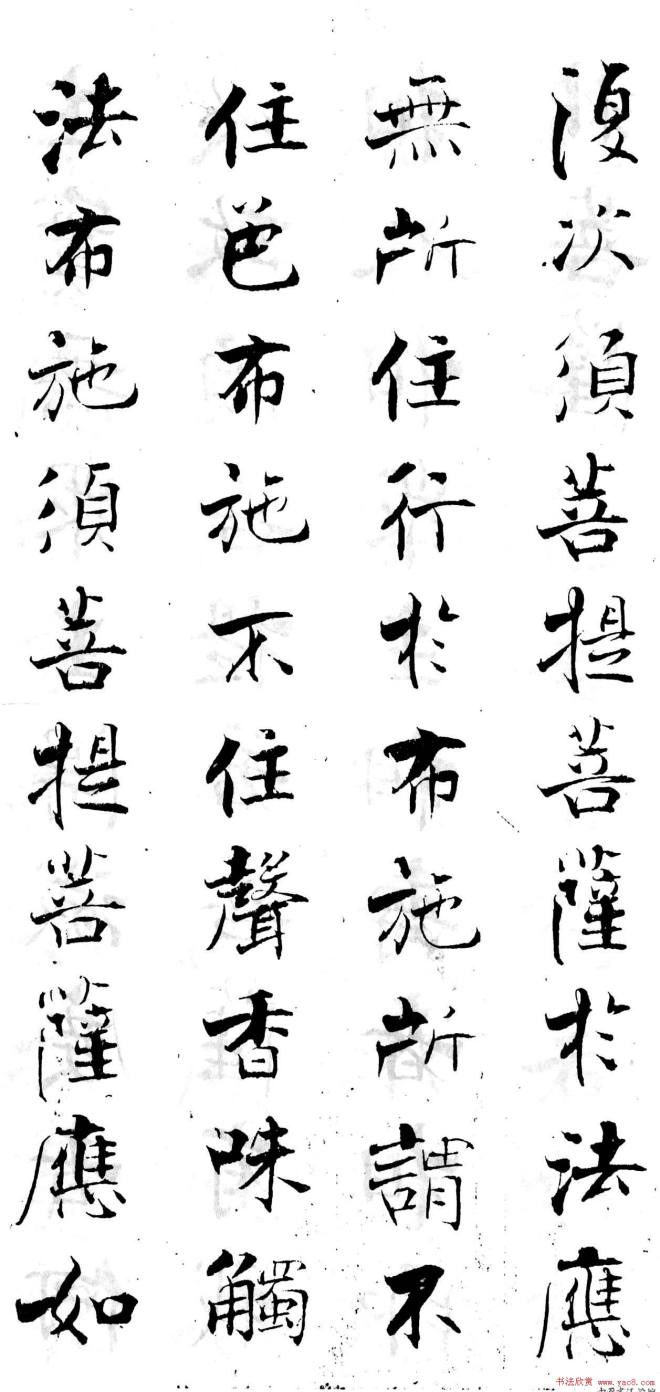 復次須菩提菩薩於法應
無所住行於布施所謂不
住色布施不住聲香味觸
法布施須菩提菩薩應如
书法欣赏 www.yac8.com